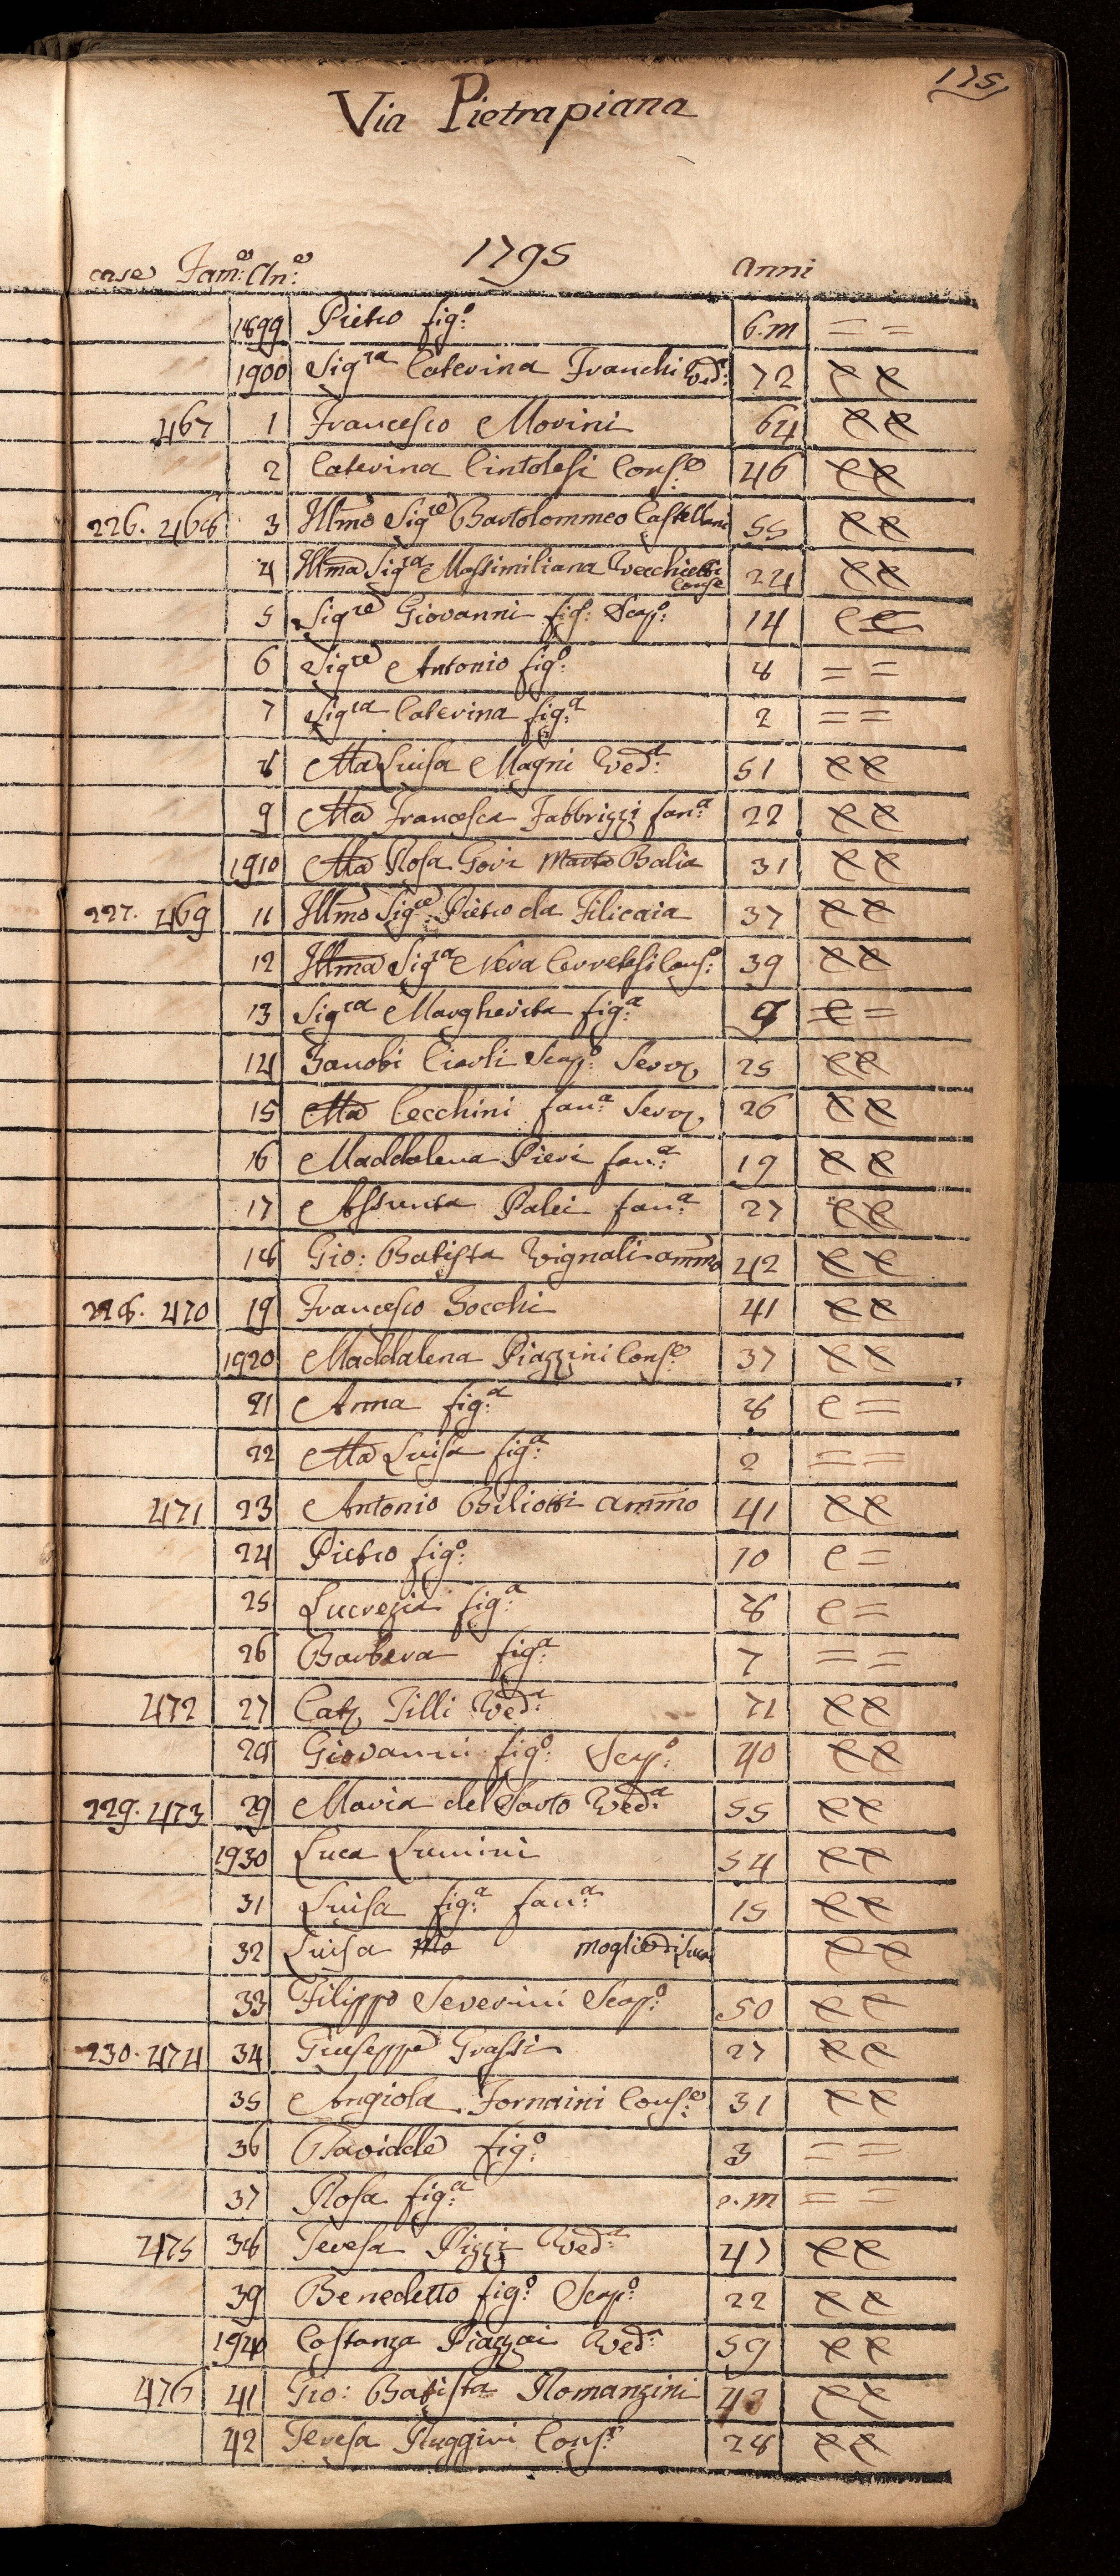 175
Via Pietrapiana
1795
case Fam:e An:e Anni
1899 Pietro fig:o 6.m = =
1900 Sigra Caterina Franchi Ved:a 72 e e
467 1 Francesco Morini 64 e e
2 Caterina Cintolesi Cons:e 46 e e
226. 468 3 Illmo Sigre Bartolommeo Castellani 55 e e
4 Illma Sigra Massimiliana Vecchietti Conse 24 e e
5 Sigre Giovanni fig: Scap: 14 e e
6 Sigre Antonio fig:o 8 = =
7 Sigra Caterina fig:a 2 = =
8 Ma Luisa Magni Ved:a 51 e e
9 Ma Francesca Fabbrizzi fan:a 22 e e
1910 Ma Rosa Gori Balia 31 e e
227. 469 11 Illmo Sigre: Pietro da Filicaia 37 e e
12 Illma Sigra Neva Cerretesi Cons:e 39 e e
13 Sigra Margherita fig:a 9 e =
14 Zanobi Ciarli Scap:o Serv. 25 e e
15 Ma Cecchini fan:a Serv. 26 e e
16 Maddalena Pieri fan:a 19 e e
17 Assunta Palei fan:a 27 e e
18 Gio: Batista Vignali ammo 42 e e
228. 470 19 Francesco Bocchi 41 e e
1920 Maddalena Piazzini Cons:e 37 e e
21 Anna fig:a 8 e =
22 Ma Luisa fig:a 2 = =
471 23 Antonio Biliotti ammo 41 e e
24 Pietro fig:o 10 e =
25 Lucrezia fig:a 8 e =
26 Barbera fig:a 7 = =
472 27 Cat. Tilli Ved:a 71 e e
28 Giovanni fig:o Scap:o 40 e e
229. 473 29 Maria del Sarto Ved:a 55 e e
1930 Luca Lumini 54 e e
31 Luisa fig:a fan:a 15 e e
32 Luisa moglie di Luca e e
33 Filippo Severini Scap:o 50 e e
230. 474 34 Giuseppe Grassi 27 e e
35 Angiola Fornaini Cons:e 31 e e
36 Davidde fig:o 3 = =
37 Rosa fig:a = =
475 38 Teresa Pizzi Ved:a 47 e e
39 Benedetto fig:o Scap:o 22 e e
1940 Costanza Piazzai Ved:a 59 e e
476 41 Gio: Batista Romanzini e e
42 Teresa Ruggini Cons:e 28 e e